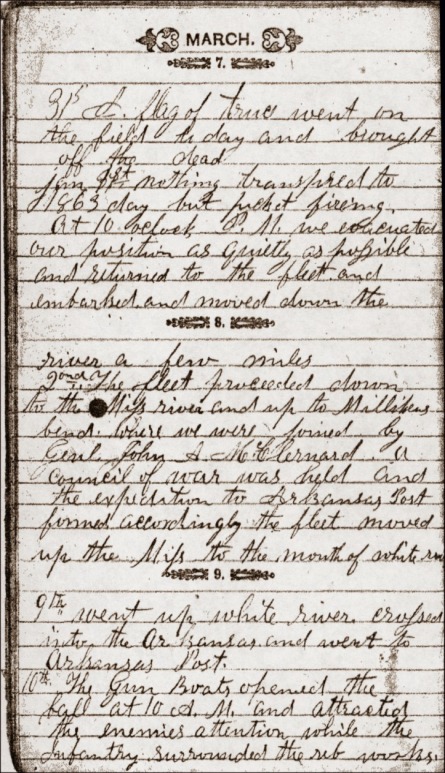 MARCH.
7.
31st A. flag of truce went on
the field to day and brought
off the dead
jan 1st nothing transpired to
1863 day but picket fireing.
At 10 oclock P. M. we evacuated
our position as quietly as possible
and returned to the fleet and
embarked and moved down the
8.
river a few miles
2ond The fleet proceeded down
to the Miss river and up to Millikens
bend. where we were joined by
Genl John A McClernard. a
council of war was held and
the expedition to Arkansas Post
formed accordingly the fleet moved
up the Miss to the mouth of white
9.
9th went up white river crossed
into the Arkansas. and went to
Arkansas Post.
10th. The Gun Boats opened the
ball at 10 A. M. and attracted
the enemies attention while the
Infantry surrounded the reb works